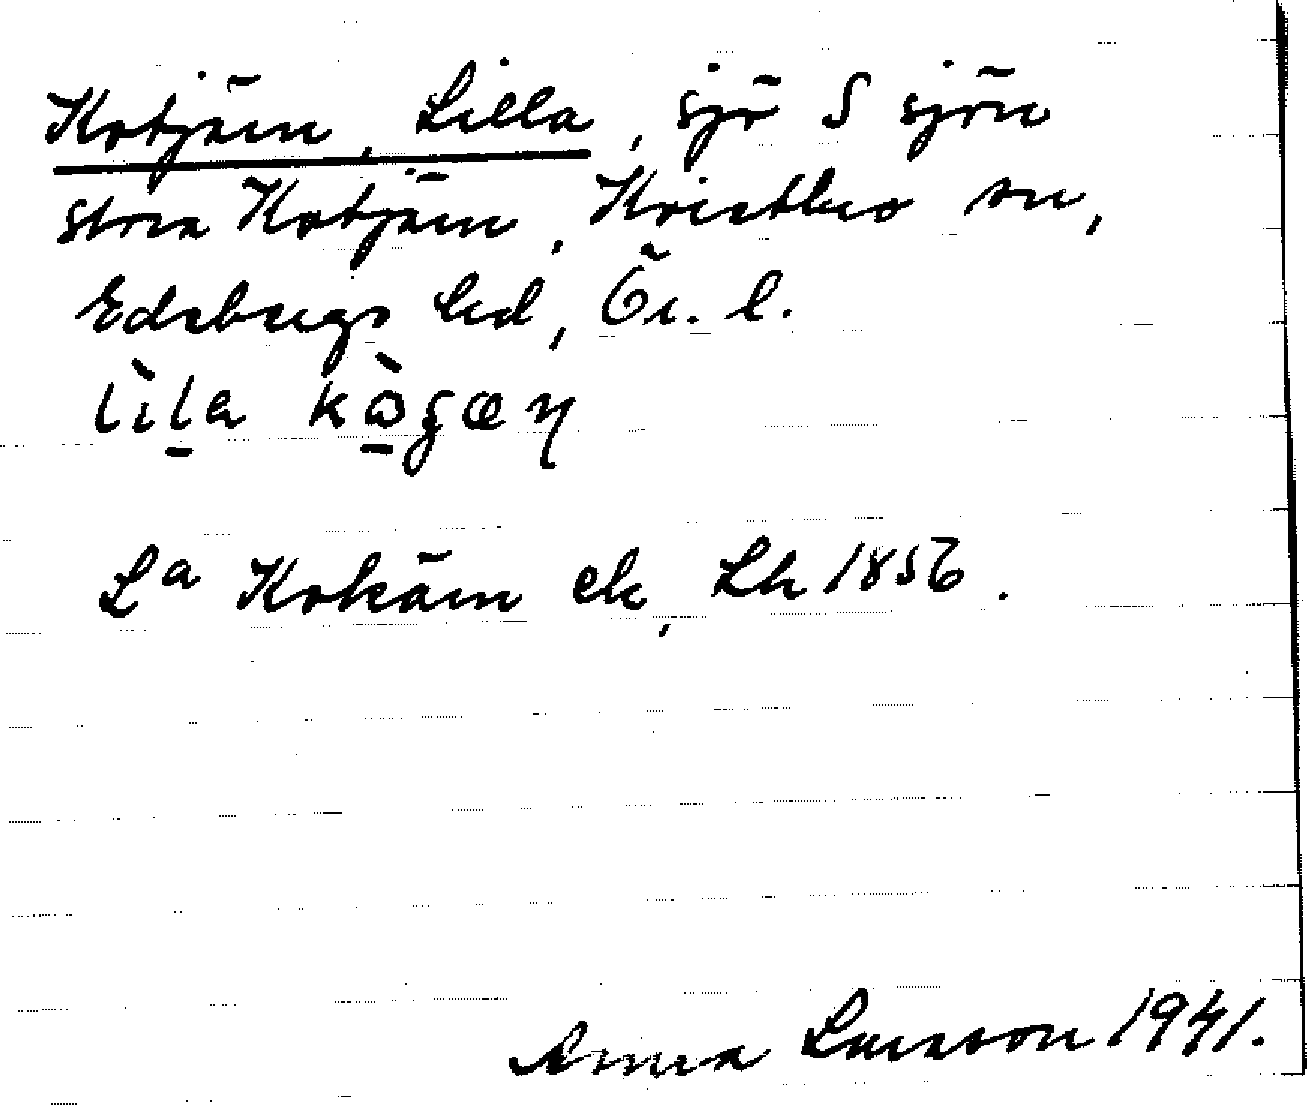 Kotjärn, Lilla, sjö S sjön
Stora Kotjärn, Kvistbro sn,
Edsbergs hd, Ör. l.
La Kokärn ek, Lk 1856.
Anna Larsson 1941.